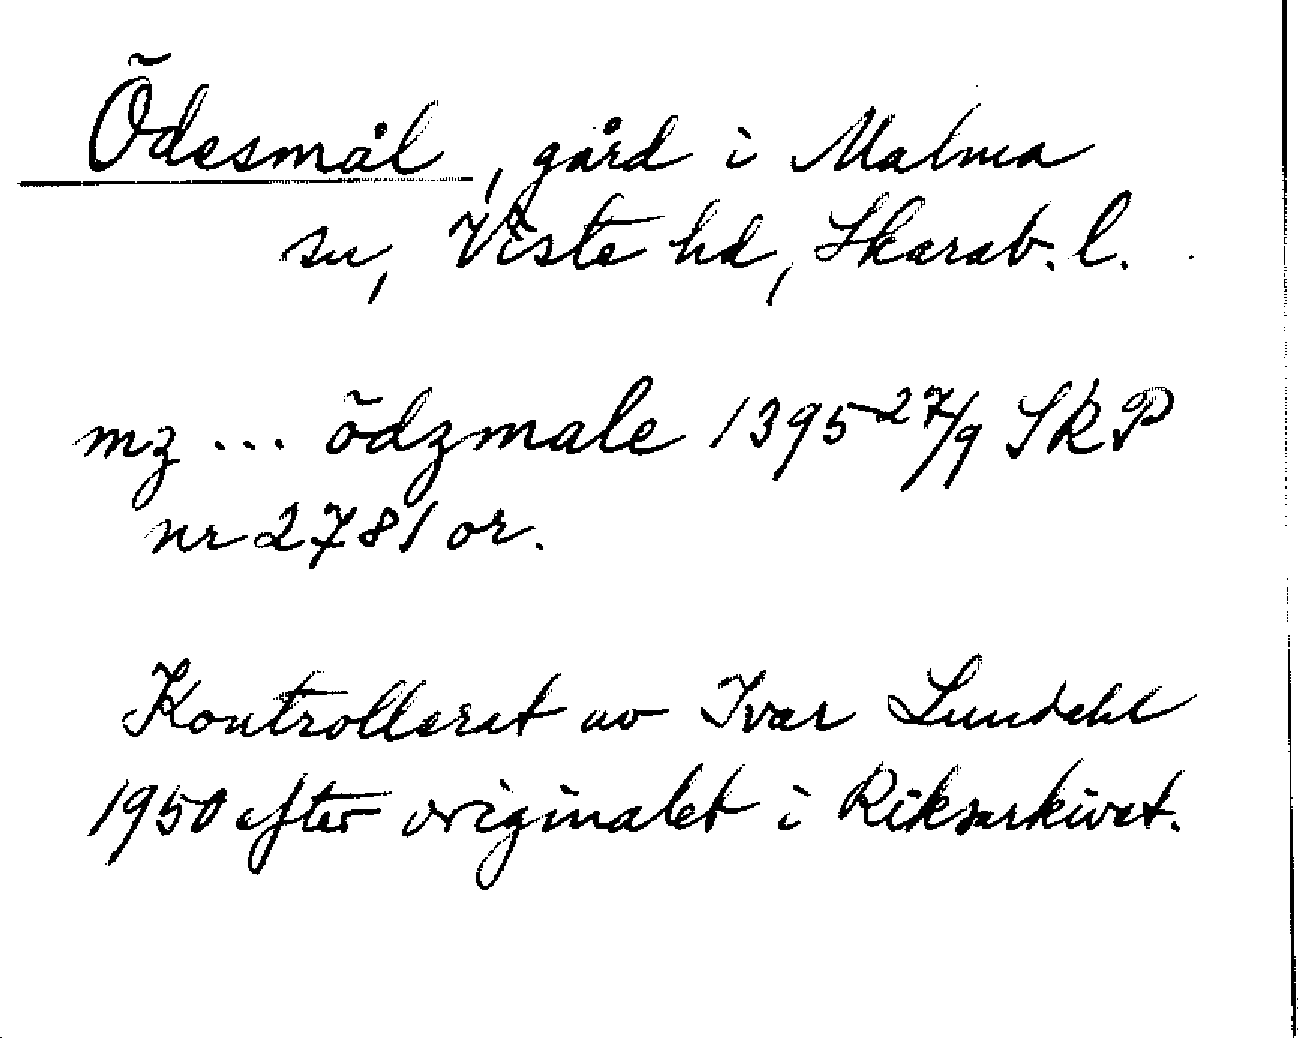 Ödesmål, gård i Malma
sn, Viste hd, Skarab. l.
mz ... ödzmale 1395 27/9 SRP
nr 2781 or.
Kontrollerat av Ivar Lundahl
1950 efter originalet i Riksarkivet.